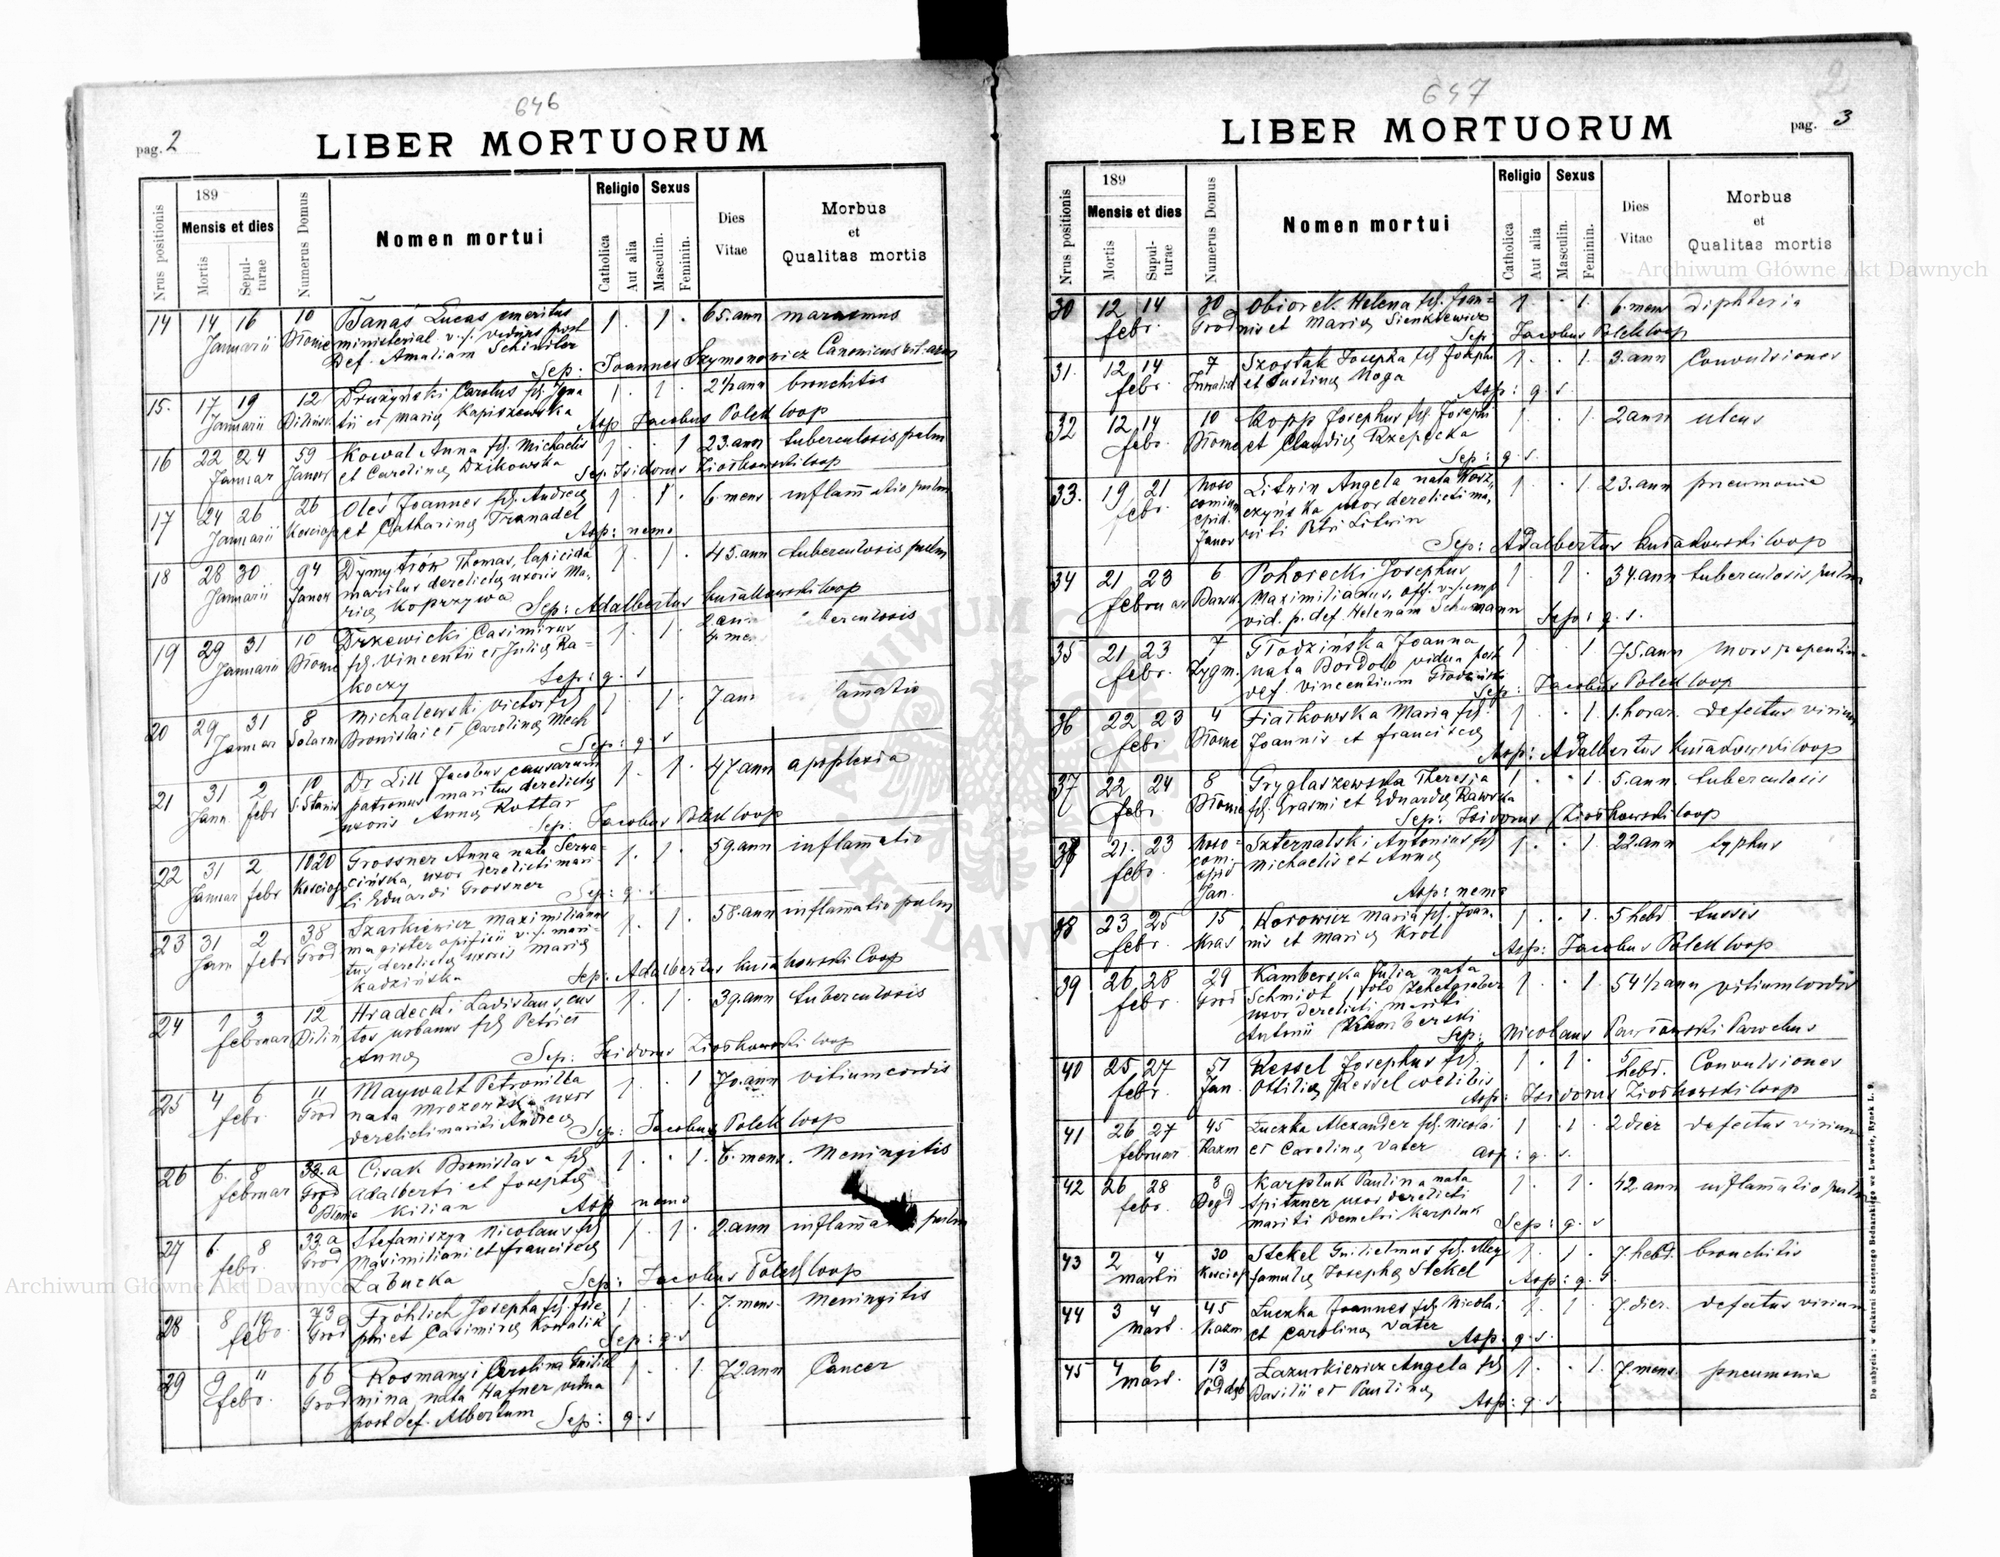 646
pag. 2
LIBER MORTUORUM
Nrus positionis
189
Mensis et dies
Mortis
Sepul-
turae
Numerus Domus
Nomen mortui
Religio
Catholica
Aut alia
Sexus
Masculin.
Feminin.
Dies
Vitae
Morbus
et
Qualitas mortis
14 14 16 10 Banaś Lucas emeritus 1. 1. 65. ann marasmus
Januarii ministerial v.s. viduus post
Def. Amaliam Schindler
Sep: Joannes Szymonowicz Canonicus
15. 17 19 12 Drużyński Carolus fil. Igna 1. 1. 2 1/2 ann bronchitis
Januarii tii et Mariæ Kapiszewska
Asp Jacobus Polek Coop
16 22 24 59 Kowal Anna fil. Michaelis 1. 1 23. ann tuberculosis pulm
Januar Janov et Carolinæ Dzikowska Sep: Isidorus Ziołkowski Coop
17 24 26 26 Oleś Joannes fil. Andreæ 1. 1. 6. mens inflam̄atio pulm
Januarii Kosciop et Catharinæ Trznadel
Asp: nemo
18 28 30 94 Dymytrów Thomas, lapicida 1. 1. 45. ann tuberculosis pulm
Januarii Janov maritus derelictæ uxoris Ma-
riæ Koprzywa Sep: Adalbertus Kułakowski Coop
19 29 31 10 Drzewicki Casimirus 1. 1.
Januarii fil. Vincentii et Juliæ Ra-
koczy Sep: q. s
20 29 31 8 Michalewski Victor fil 1. 1.
Januar Solarni Bronislai et Carolinæ Mech
Sep: q. s
21 31 2 10 Dr Lill Jacobus causarum 1. 1. 47 ann apoplexia
Jann. febr S. Stanis patronus maritus derelictæ
uxoris Annæ Rottar
Sep: Jacobus Polek Coop
22 31 2 1020 Grossner Anna nata Serwa- 1. 1. 59. ann inflam̄atio
Januar febr Kosciop cińska, uxor derelicti mari-
ti Eduardi Grossner Sep: q. s
23 31 2 38 Szarkiewicz Maximilianus 1. 1. 58. ann inflam̄atio pulm
Jan febr Grod magister opificii v.s. mari-
tus derelictæ uxoris Mariæ
Kadzińska Sep: Adalbertus Kułakowski Coop
24 1 3 12 Hradecki Ladislaus, cus 1. 1. 39. ann tuberculosis
februar tos urbanus fil Petri et
Annæ Sep: Isidorus Ziołkowski Coop
25 4 6 11 Maywalt Petronilla 1. 1 70. ann vitium cordis
febr. Grod nata Mrozowska uxor
derelicti mariti Andreæ Sep: Jacobus Polek Coop
26 6. 8 33. a Cisak Bronislava fil 1. 1. 6. mens. Meningitis
februar Grod Adalberti et Josephæ
Kilian Asp nemo
27 6. 8 33. a Stefaniszyn Nicolaus fil 1. 1. 2. ann inflam̄atio pulm
febr. Grod Maximiliani et Franciscæ
Łabucka Sep: Jacobus Polek Coop
28 8 10 73 a Fröhlich Josepha fil. Jose- 1. 1. 7. mens. Meningitis
febr. Grod phi et Casimiræ Kowalik
Sep: q. s
29 9 11 66 Rosmanyi Carolina Guiliel 1. 1. 72. ann Cancer
febr. Grod mina, nata Hafner vidua
post def. Albertum Sep: q. s
647
2
LIBER MORTUORUM
pag. 3
Nrus positionis
189
Mensis et dies
Mortis
Supul-
turae
Numerus Domus
Nomen mortui
Religio
Catholica
Aut alia
Sexus
Masculin.
Feminin.
Dies
Vitae
Morbus
et
Qualitas mortis
30 12 14 30 Obiorek Helena fil. Joan- 1. 1. 6. mens diphteria
febr. Grod nis et Mariæ Sienkiewicz
Sep: Jacobus Polek Coop
31. 12 14 7 Szostak Josepha fil Josephi 1. 1. 3. ann Convulsiones
febr. Inwalid et Justinæ Moga
Asp: q. s.
32 12 14 10 Kopp Josephus fil. Josephi 1 1. 2 ann ulcus
febr. et Claudiæ Rzepecka
Sep: q. s.
33. 19 21 Noso Litwin Angela nata Korz, 1. 1. 23. ann pneumonia
febr. comium czyńska uxor derelicti ma,
epid. riti Petri Litwin
Janov
Sep: Adalbertus Kułakowski Coop
34 21 23 6 Pohorecki Josephus 1 1. 34. ann tuberculosis pulm
februar Maximilianus, off. v.s. emp
vid. p. def. Helenam Schumann Sep: q. s.
35 21 23 7 Głodzińska Joanna 1 1 75. ann mors repentin-
febr. Zygm. nata Bordolo vidua post
def. Vincentium Głodziński
Sep: Jacobus Polek Coop
36 22 23 4 Fiałkowska Maria fil. 1 1 1. horar. defectus virium
febr. Joannis et Franciscæ
Asp: Adalbertus Kułakowski Coop
37 22 24 8 Gryglaszewska Theresia 1 1 5. ann. tuberculosis
febr. fil. Erasmi et Eduardæ Rawska
Sep: Isidorus Ziołkowski Coop
38 21. 23 Noso- Szternalski Antonius fil 1 1. 22. ann typhus
febr. com. Michaelis et Annæ
epid
Jan.
Asp: nemo
38 23 25 15 Korowicz Maria fil. Joan. 1 1. 5 hebd tussis
febr. Kras nis et Mariæ Król
Asp: Jacobus Polek Coop
39 26 28 29 Kamberska Julia nata 1. 1. 54 1/2 ann vitium cordis
febr. Grod Schmidt, voto Zehetgruber
uxor derelicti mariti
Antonii Kamberski Sep: Nicolaus Parochus
40 25 27 51 Kessel Josephus fil. 1. 1. 5 hebd. Convulsiones
febr. Jan. Ottiliæ Kessel coelibis
Asp: Isidorus Ziołkowski Coop
41 26 27 45 Łuczka Alexander fil. Nicolai 1 1 2 dier defectus virium
februar Kazm et Carolinæ Vater Asp: q. s.
42 26 28 3 Karpluk Paulina nata 1. 1. 42. ann inflam̄atio pulm
febr. Bogd Spitzner uxor derelicti
mariti Demetri Karpluk
Sep: q. s
43 2 4 30 Stekel Guilielmus fil. Mag 1 1 7. hebd. bronchitis
Martii Kosciop famulæ Josephæ Stekel Asp: q. s.
44 3 4 45 Łuczka Joannes fil Nicolai 1 1 7. dier. defectus virium
Mart. Kazm et Carolinæ Vater
Asp: q. s.
45 4 6 13 Łazurkiewicz Angela fil 1. 1. 7. mens. pneumonia
Mart. Basilii et Paulinæ
Asp: q. s.
Do nabycia: w drukarni Szczęsnego Bednarskiego we Lwowie, Rynek L. 9.
Archiwum Główne Akt Dawnych
Archiwum Główne Akt Dawnych
ARCHIWUM GŁÓWNE AKT DAWNYCH